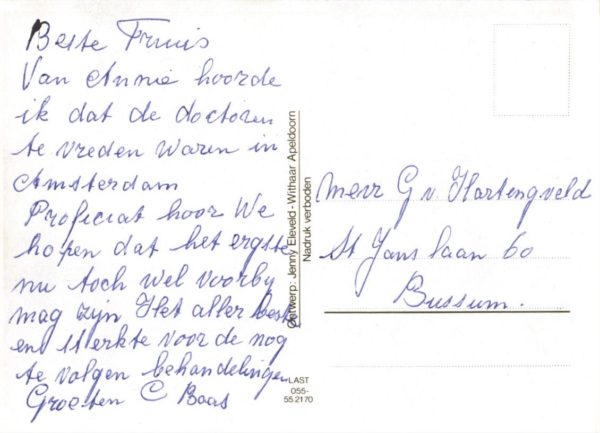 Beste Truus
Van Annie hoorde
ik dat de doctoren
te vreden waren in
Amsterdam
Proficiat hoor We
hopen dat het ergste
nu toch wel voorby
mag zijn Het aller beste
en sterkte voor de nog
te volgen behandelingen
Groeten C Boas
Ontwerp: Jenny Eleveld-Withaar Apeldoorn
Nadruk verboden
LAST
055-
55 2170
mevr G v. Hartengveld
St Jans laan 60
Bussum.